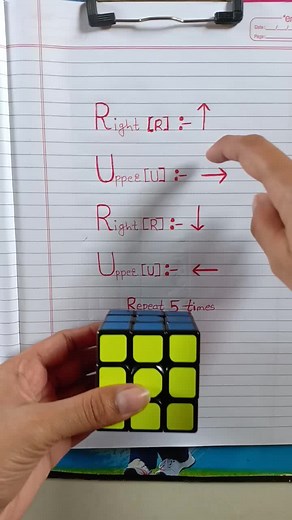 Right [R] :- ↑
Upper [U] :- →
Right [R] :- ↓
Upper [U] :- ←
Repeat 5 times
Date:
Page: